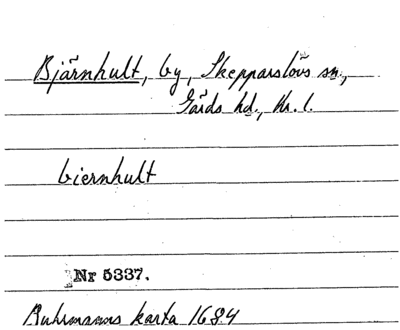 Bjärnhult, by, Skepparslövs sn,
Gärds hd., Kr. l.
biernhult
Nr 5337.
Buhrmanns karta 1684